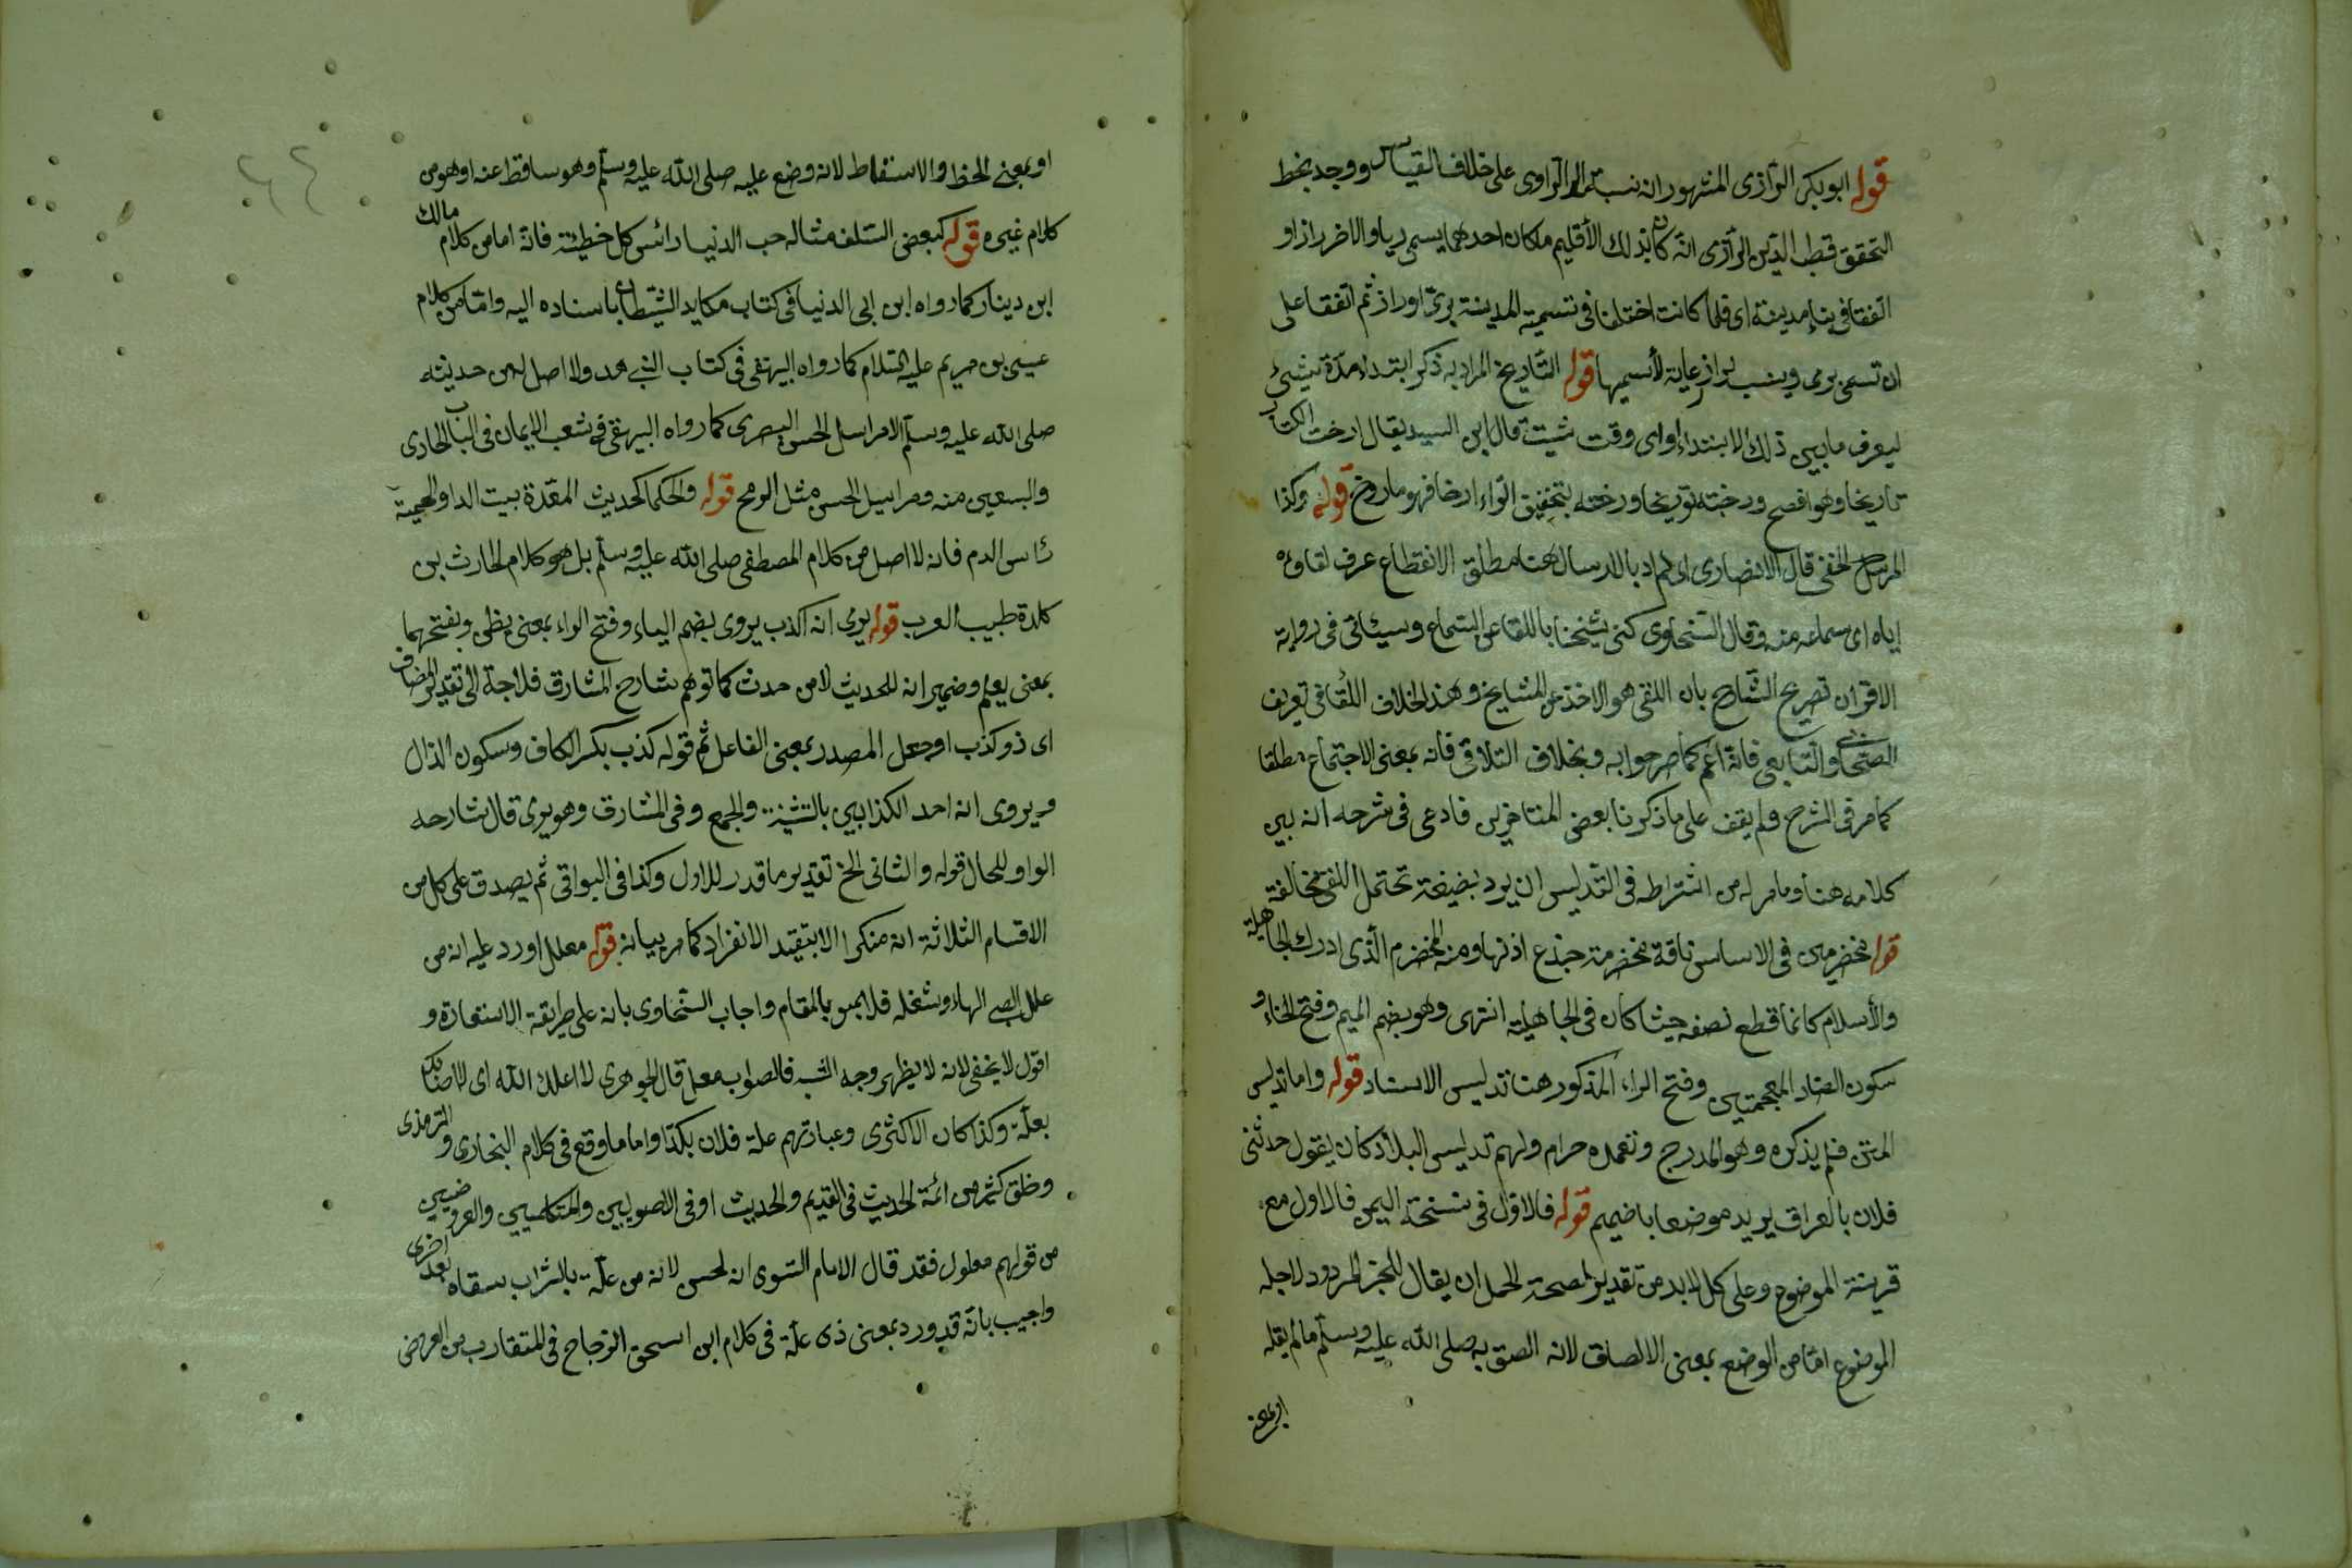 قوله ابو بكر الرازى المشهور انه نسب الى الراوى على خلاف القياس ووجد بخط
التحقق قطب الدين الرازى انه كان بذلك الأقليم ملكان احدهما يسمى ريا والاخر راز او
اتفقا فى بناء مدينة اى فلما كانت اختلفا فى تسمية المدينة برى او راز ثم اتفقا على
ان تسمى برى وينسب لراز رعاية لأسميها قوله التأريخ المراد به ذكر ابتداء مدة شيئ
ليعرف ما بين ذلك الابتداء واى وقت شيت قال ابن السيد يقال ارخت الكتاب
تاريخا وهو افصح ورخته توريخا ورخته بتخفيف الراء ارخا فهو مارخ قوله وكذا
المرسل الخفى قال الانصارى اى المراد بالارسال هنا مطلق الانقطاع عرف لقاؤه
اياه اى سماعه منه وقال السخاوى كنى شيخنا باللقا عن السماع وسيئاتى فى رواية
الاقران تصريح الشارح بان اللقى هو الاخذ عن المشايخ وهذا بخلاف اللقا فى تعريف
الصحابى والتابعى فانه اعم كما صرحوا به وبخلاف التلاقى فانه بمعنى الاجتماع مطلقا
كما مر فى الشرح ولم يقف على ما ذكرنا بعض المتاخرين فادعى فى شرحه انه بين
كلامه هنا وما مر له من اشتراطه فى التدليس ان يرد بصيغة تحتمل اللقى مخالفة
قوله مخضرمين فى الاساس ناقة مخضرمة جذع اذنها ومنه المخضرم الذى ادرك الجاهلية
والأسلام كانما قطع نصفه حيث كان فى الجاهلية انتهى وهو بضم الميم وفتح الخاء و
سكون الضاد المعجمتين وفتح الراء المذكور هنا تدليس الاسناد قوله واما تدليس
المتن فلم يذكره وهو المدرج وتعمده حرام ولهم تدليس البلاد كان يقول حدثنى
فلان بالعراق يريد موضعا باخميم قوله فالاول فى نسخة اليمن فالاول مع
قرينة الموضوع وعلى كل لابد من تقدير لصحة الحمل ان يقال للخبر المردود لاجله
الموضوع اما من الوضع بمعنى الالصاق لانه الصق به صلى الله عليه وسلم مالم يقله
او بمعنى
او بمعنى الحظ والاسقاط لانه وضع عليه صلى الله عليه وسلم وهو ساقط عنه او هو من
كلام غيره قوله كبعض السلف مثاله حب الدنيا رائس كل خطيئة فانه اما من كلام مالك
ابن دينار كما رواه ابن ابى الدنيا فى كتاب مكايد الشيطان باسناده اليه واما من كلام
عيسى بن مريم عليه السلام كما رواه البيهقى فى كتاب الزهد ولا اصل له من حديثه
صلى الله عليه وسلم الا مراسل الحسن البصرى كما رواه البيهقى فى شعب الايمان فى الباب الحادى
والسبعين منه ومراسيل الحسن مثل الريح قوله والحكما كحديث المعدة بيت الدا والحمية
رائس الدم فانه لا اصل من كلام المصطفى صلى الله عليه وسلم بل هو كلام الحارث بن
كلدة طبيب العرب قوله يرى انه اكذب يروى بضم الياء وفتح الراء بمعنى يظن وبفتحهما
بمعنى يعلم وضمير انه للحديث لا من حدث كما توهم شارح المشارق فلا حجة الى تقدير المضاف
اى ذو كذب او جعل المصدر بمعنى الفاعل ثم قوله كذب بكسر الكاف وسكون الذال
ويروى انه احد الكذابين بالتثنية والجمع وفى المشارق وهو يرى قال شارحه
الواو للحال قوله والثانى الخ تقدير ما قدر للاول وكذا فى البواقى ثم يصدق على كل من
الاقسام الثلاثة انه منكر الا بتقييد الانفراد كما مر بيانه قوله معلل اورد عليه انه من
علل الصبى الهاه وشغله فلا يمس بالمقام واجاب السخاوى بانه على طريقة الاستعارة و
اقول لا يخفى لانه لا يظهر وجه الشبه فالصواب معل قال الجوهرى لا اعلك الله اى لا اصابك
بعلة وكذا كان الاكثرى وعبارتهم علة فلان بكذا واما ما وقع فى كلام البخارى والترمذى
وخلق كثير من ائمة الحديث فى القديم والحديث او فى الاصوليين والمتكلمين والعروضيين
من قولهم معلول فقد قال الامام النووى انه لحن لانه من علة بالشراب سقاه بعد اخرى
واجيب بانه قد ورد بمعنى ذى علة فى كلام ابن اسحق الزجاج فى المتقارب من العروض